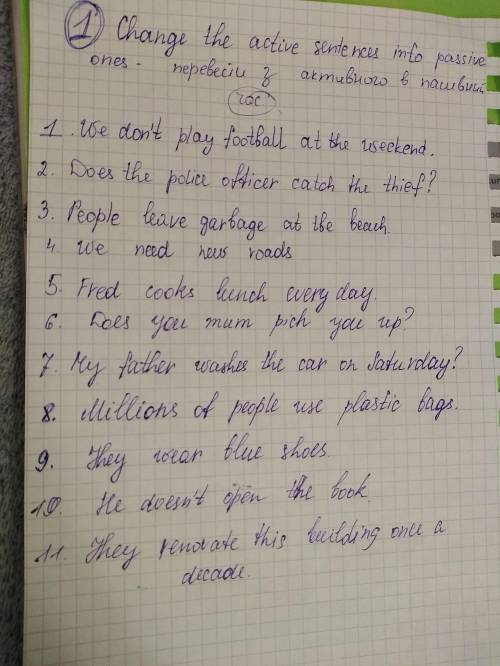 1 Change the active sentences into passive
ones - перевести з активного в пасивний
час
1. We don't play football at the weekend.
2. Does the police officer catch the thief?
3. People leave garbage at the beach.
4. We need new roads
5. Fred cooks lunch every day.
6. Does you mum pick you up?
7. My father washes the car on Saturday?
8. Millions of people use plastic bags.
9. They wear blue shoes.
10. He doesn't open the book.
11. They renovate this building once a
decade.